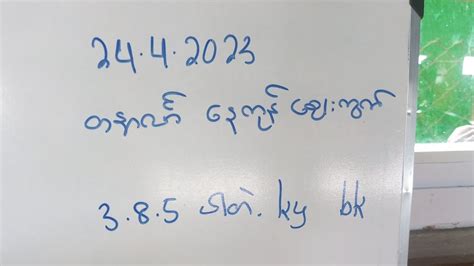 24.4.2023
တနင်္လာ နေ့ကုန် ဈေးကွက်
3.8.5 ပါတဲ. ky bk